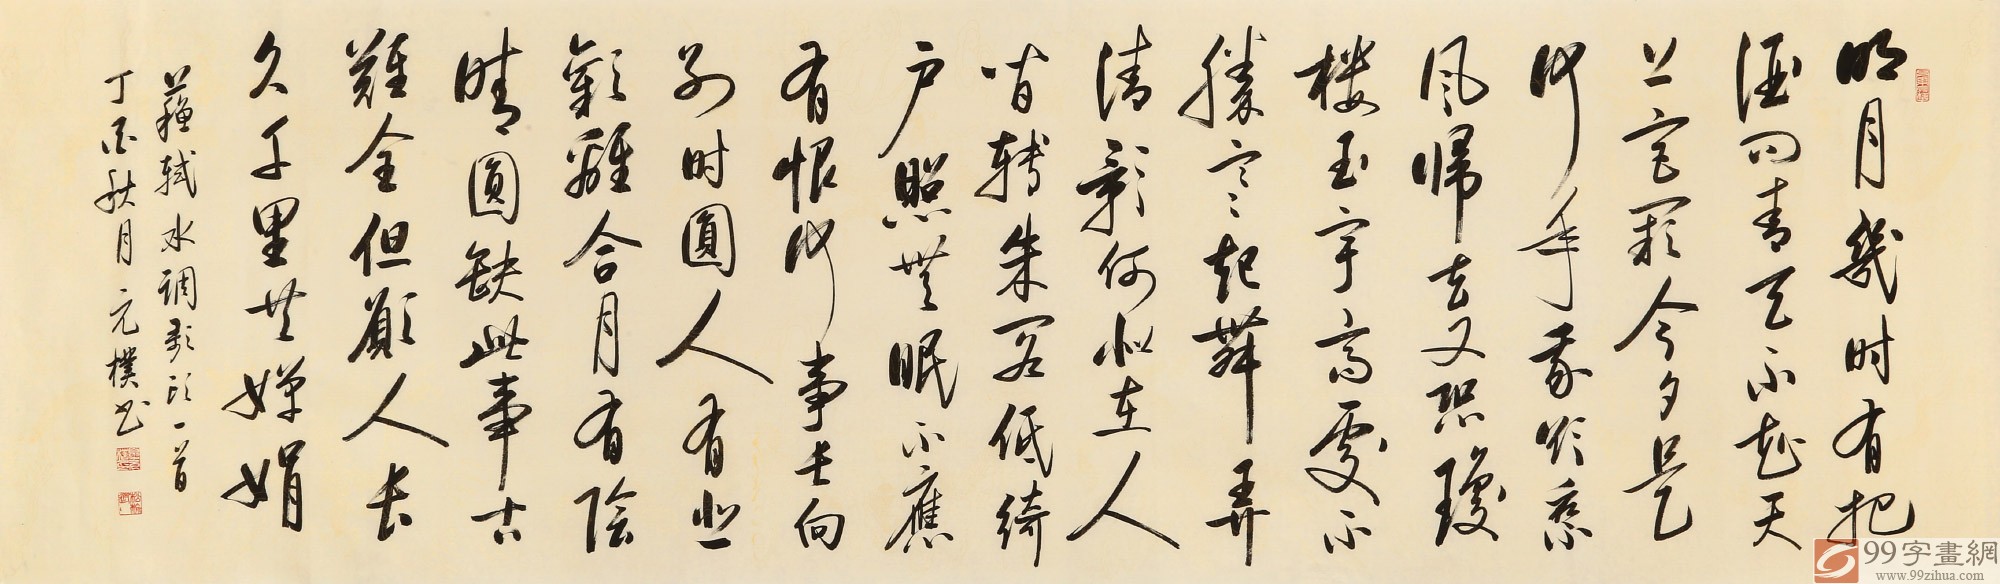 明月幾时有把
酒问青天不知天
上宫阙今夕是
何年我欲乘
风帰去又恐瓊
楼玉宇高處不
勝寒起舞弄
清影何似在人
间轉朱阁低綺
户照無眠不應
有恨何事长向
别时圓人有悲
歡離合月有陰
晴圓缺此事古
難全但願人长
久千里共嬋娟
蘇軾水调歌頭一首
丁酉秋月元樸书
99字畫網
www.99zihua.com